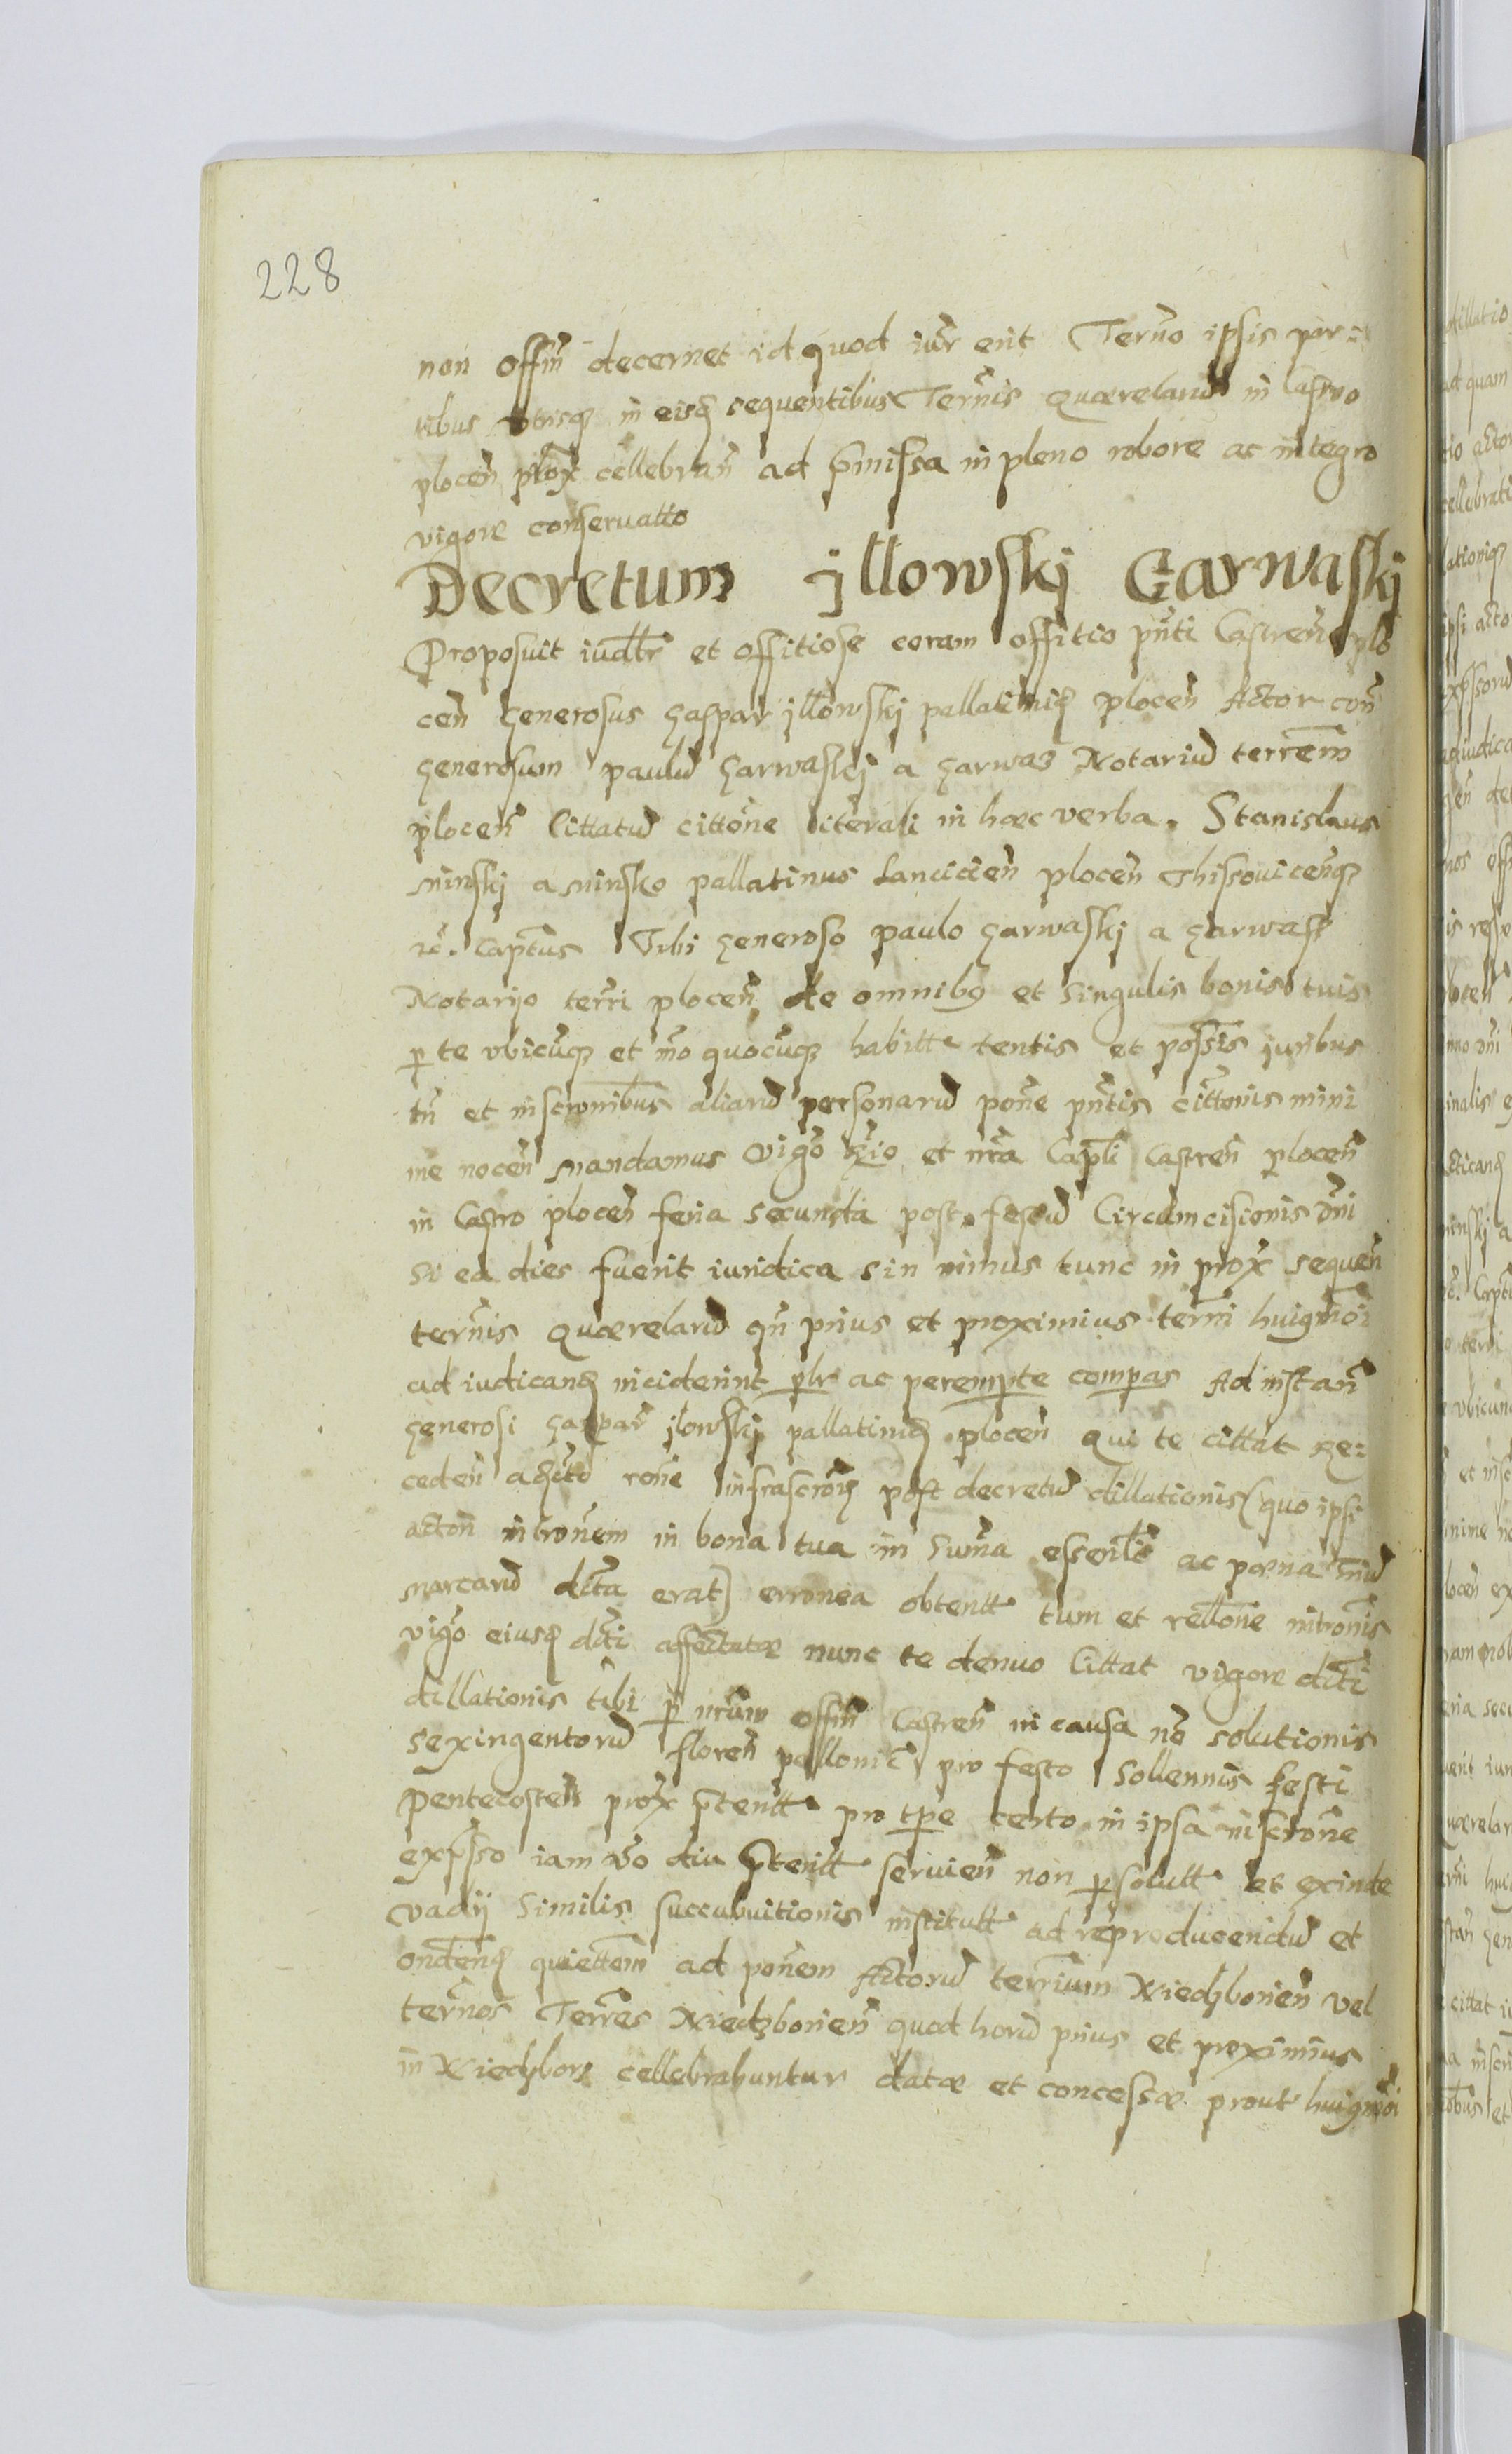 228
non offm̃ decernet id quod iur̃ erit Termo ipsis par:
tibus vtrisq3 in eisd sequentibus Termis quærelarũ in Castro
plocen̄ prox̃ cellebran̄ ad p̄missa in pleno robore ac integro
vigore conseruatto
Decretum jllowskj Garwaskj
Proposuit iudl̃r et offitiose coram offitio pñti Castren̄ plo
cen̄ generosus gaspar jllowskj pallatinid plocen̄ Actor con̄
generosum paulũ garwaskj a garwaz Notariũ terrem̄
plocen̄ Cittatũ cittõne literali in hæc verba. Stanislaus
minskj a minsko pallatinus Lancicien̄ plocen̄ thissouicenq3
ić. Capt̃us Tibi generoso paulo garwaskj a garwasz
Notarijo terri plocen̄ de omnibq et singulis bonis tuis
p te vbicũq3 et mõ quocũq3 habitt tentis et possis̄ juribus
tñ et inscronibus̄ aliarũ personarũ pon̄e pñtis cittõnis mini
me nocen̄ mandamus vigõ Rgio et nrã Capli Castren̄ plocen̄
in Castro plocen̄ feria secunda post festũ Circumcisionis dñi
si ea dies fuerit iuridica sin minus tunc in prox̃ sequen̄
term̃is quærelarũ qñ prius et proximius term̃i huiqm̃oi
ad iudicand inciderint plr ac perempte compas Ad instan̄
generosi gaspar̃ jlowskj pallatinid plocen̄ qui te cittat Re:
ceden̄ acito rõne infrascrõd post decretũ dillationis (quo ipsi
actori introm̃em in bona tua in sum̃a essenlĩ ac pæna m̃iũ
marcarũ dicta erat) erronea obtentt tum et rellõne intromis̃
vigõ eiusd dcti affectatæ nunc te denuo Cittat vigore dcti
dillationis tibi p nrũm offm̃ Castren̄ in causa nõ solutionis
sexingentorũ floren̄ pollonic̄ pro festo sollennis festi
pentecosten̄ prox̃ p̄tentt pro tpe certo in ipsa inscrõne
exp̄sso iam vo diu p̄tentt seruien̄ non psolutt et exinde
vadij similis succubuitionis institutt ad reproducendũ et
ondend quiettem̃ ad ponem̃ Actorũ terrium̃ Niedzborien̄ vel
term̃os Terres̃ Niedzborien̄ quod horũ prius et proximius
in Niedzborz cellebrabuntur datæ et concessæ prout huiqm̃oi